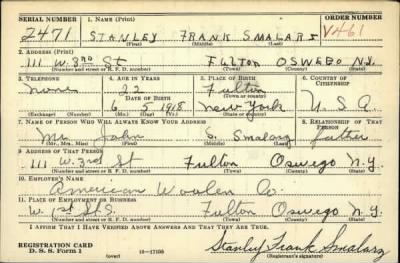 SERIAL NUMBER 1. NAME (Print) ORDER NUMBER
2471 STANLEY FRANK SMALARZ V461
(First) (Middle) (Last)
2. ADDRESS (Print)
111 W. 3RD St FULTON OSWEGO N.Y.
(Number and street or R. F. D. number) (Town) (County) (State)
3. TELEPHONE 4. AGE IN YEARS 5. PLACE OF BIRTH 6. COUNTRY OF CITIZENSHIP
none 22 Fulton
DATE OF BIRTH (Town or county)
6 5 1918 New York U.S.A.
(Exchange) (Number) (Mo.) (Day) (Yr.) (State or country)
7. NAME OF PERSON WHO WILL ALWAYS KNOW YOUR ADDRESS 8. RELATIONSHIP OF THAT PERSON
Mr. John S. Smalarz father
(Mr., Mrs., Miss) (First) (Middle) (Last)
9. ADDRESS OF THAT PERSON
111 W. 3rd St Fulton Oswego N.Y.
(Number and street or R. F. D. number) (Town) (County) (State)
10. EMPLOYER'S NAME
American Woolen Co.
11. PLACE OF EMPLOYMENT OR BUSINESS
W. 1st St. S. Fulton Oswego N.Y.
(Number and street or R. F. D. number) (Town) (County) (State)
I AFFIRM THAT I HAVE VERIFIED ABOVE ANSWERS AND THAT THEY ARE TRUE.
REGISTRATION CARD
D. S. S. Form 1 (over) 16-17105 Stanley Frank Smalarz
(Registrant's signature)